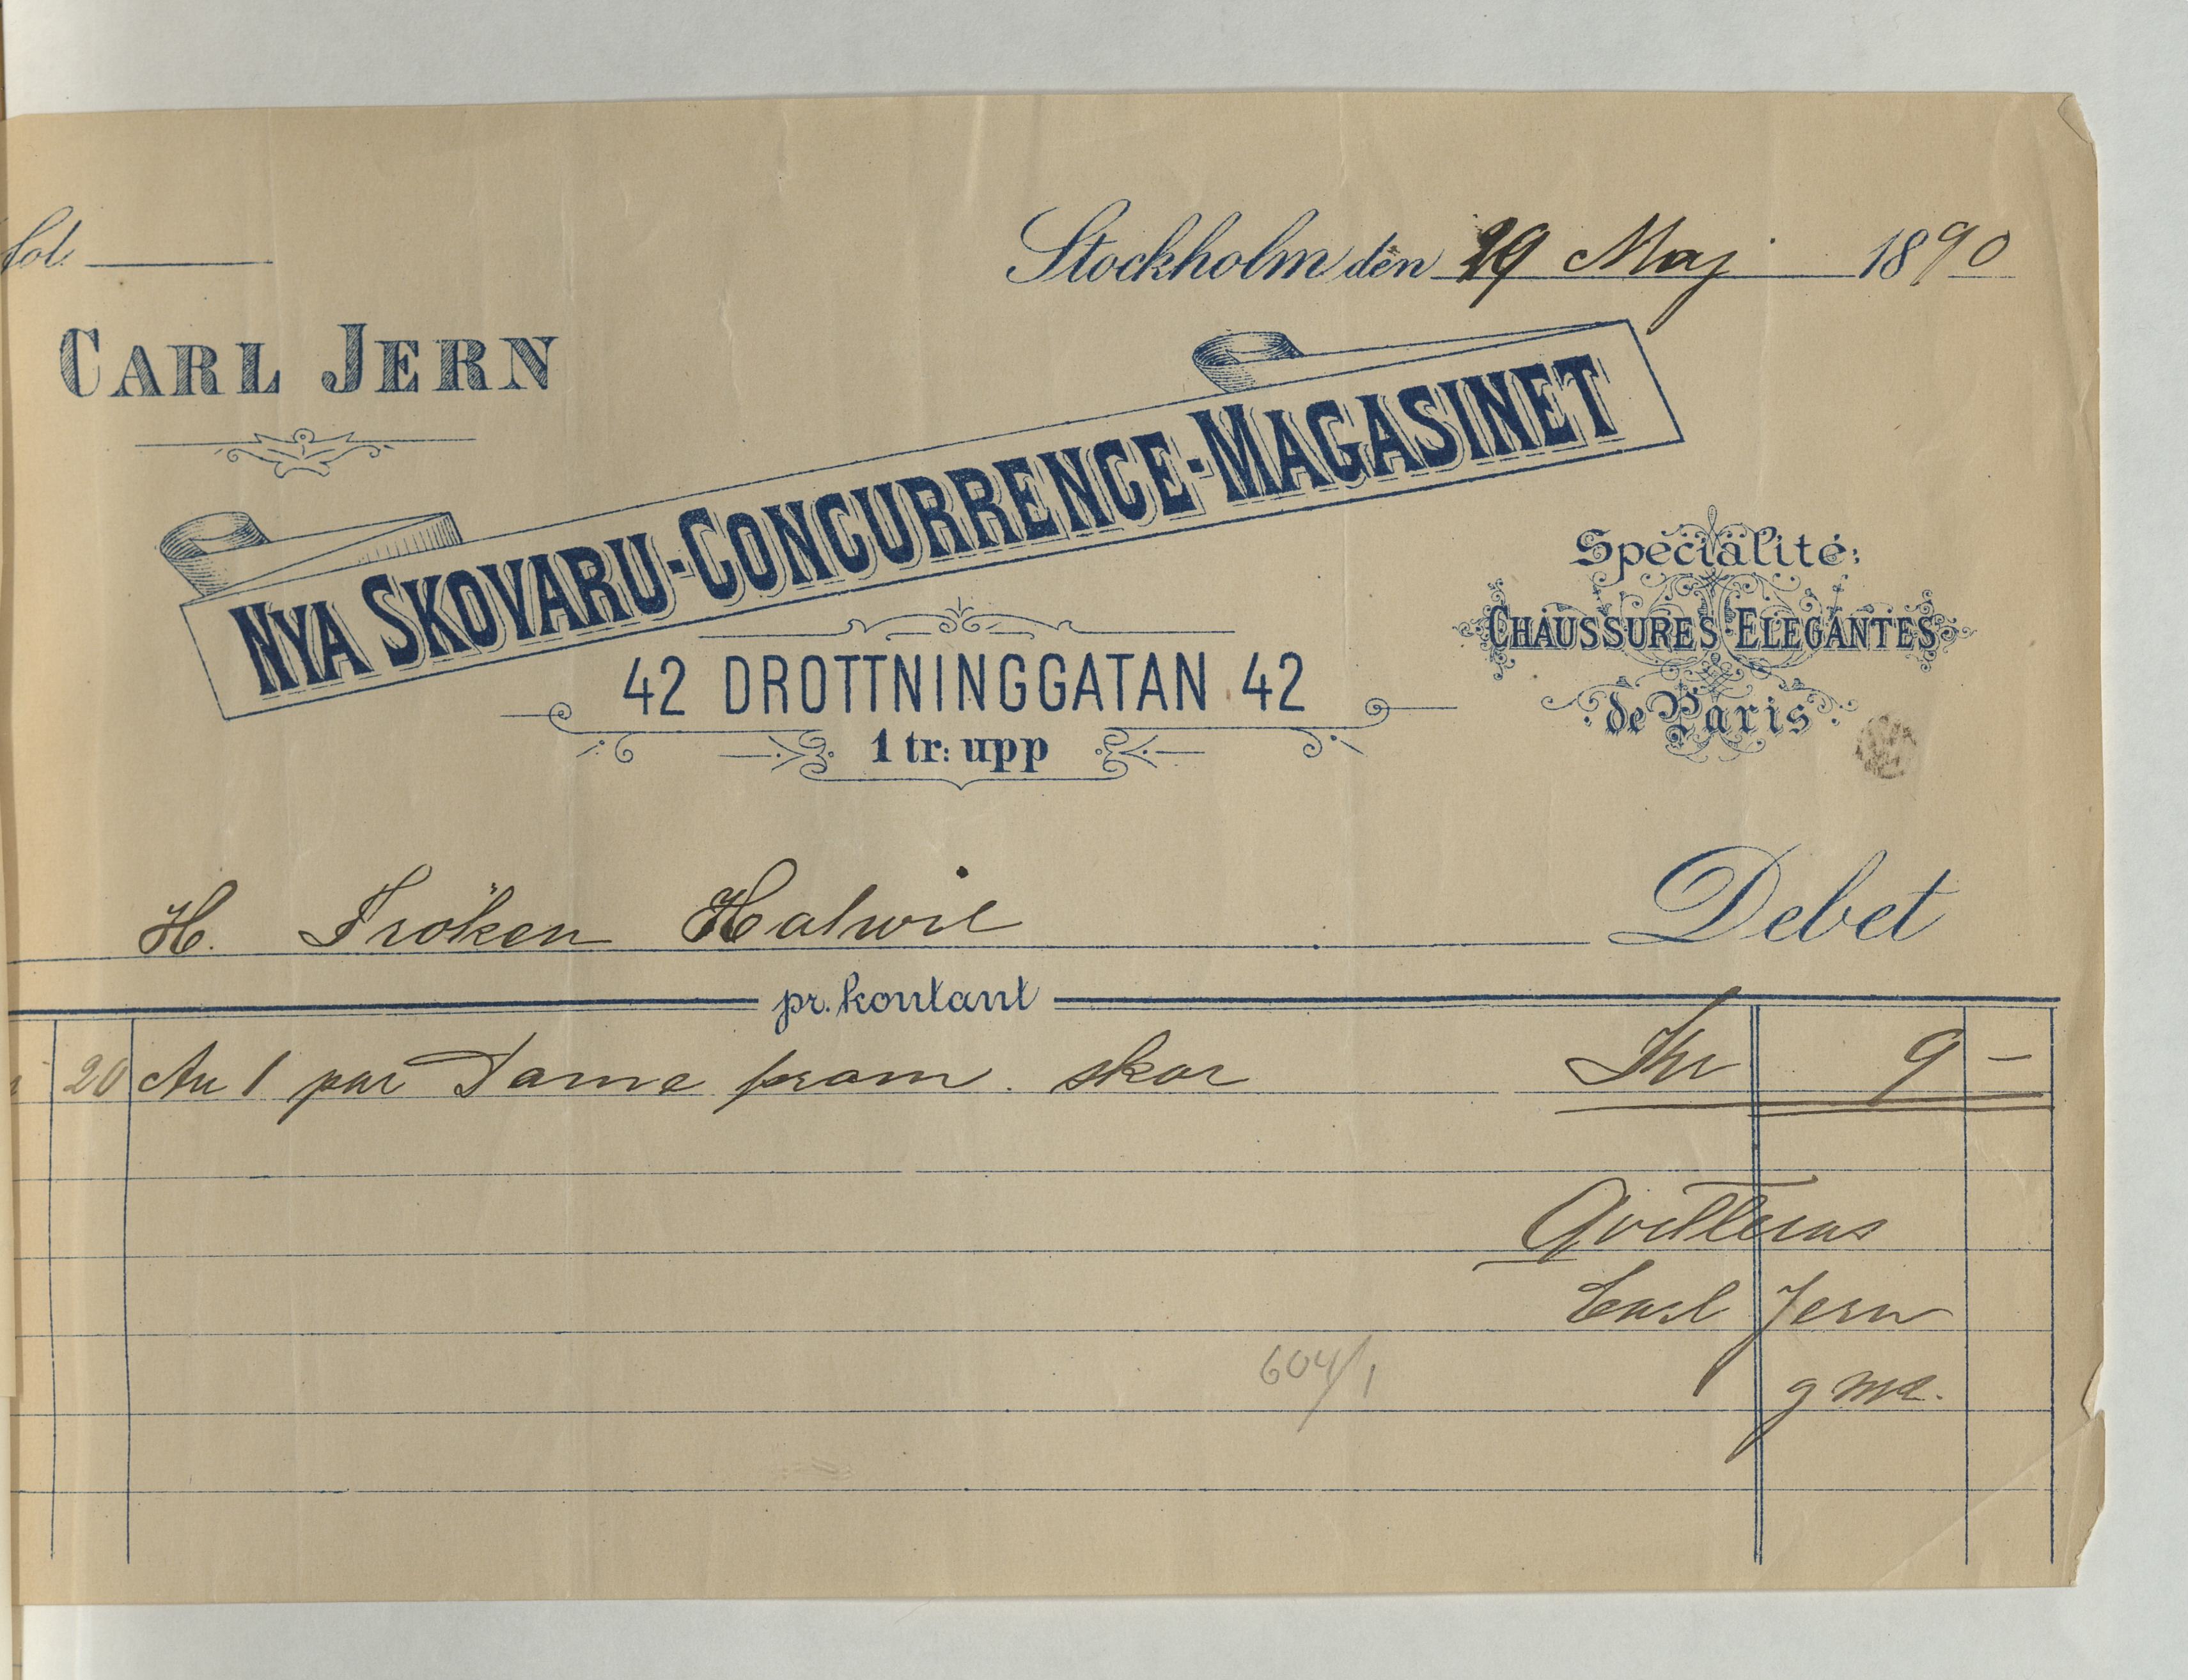 fol.
Stockholm den 29 Maj 1890
CARL JERN
NYA SKOVARU-CONCURRENCE-MAGASINET
Specialité:
CHAUSSURES ELEGANTES
de Paris
42 DROTTNINGGATAN 42
1 tr: upp
H. Fröken Halwil Debet
pr. kontant
20 An 1 par Dame prom. skor Kr 9 –
Qvitteras
Carl Jern
604/1